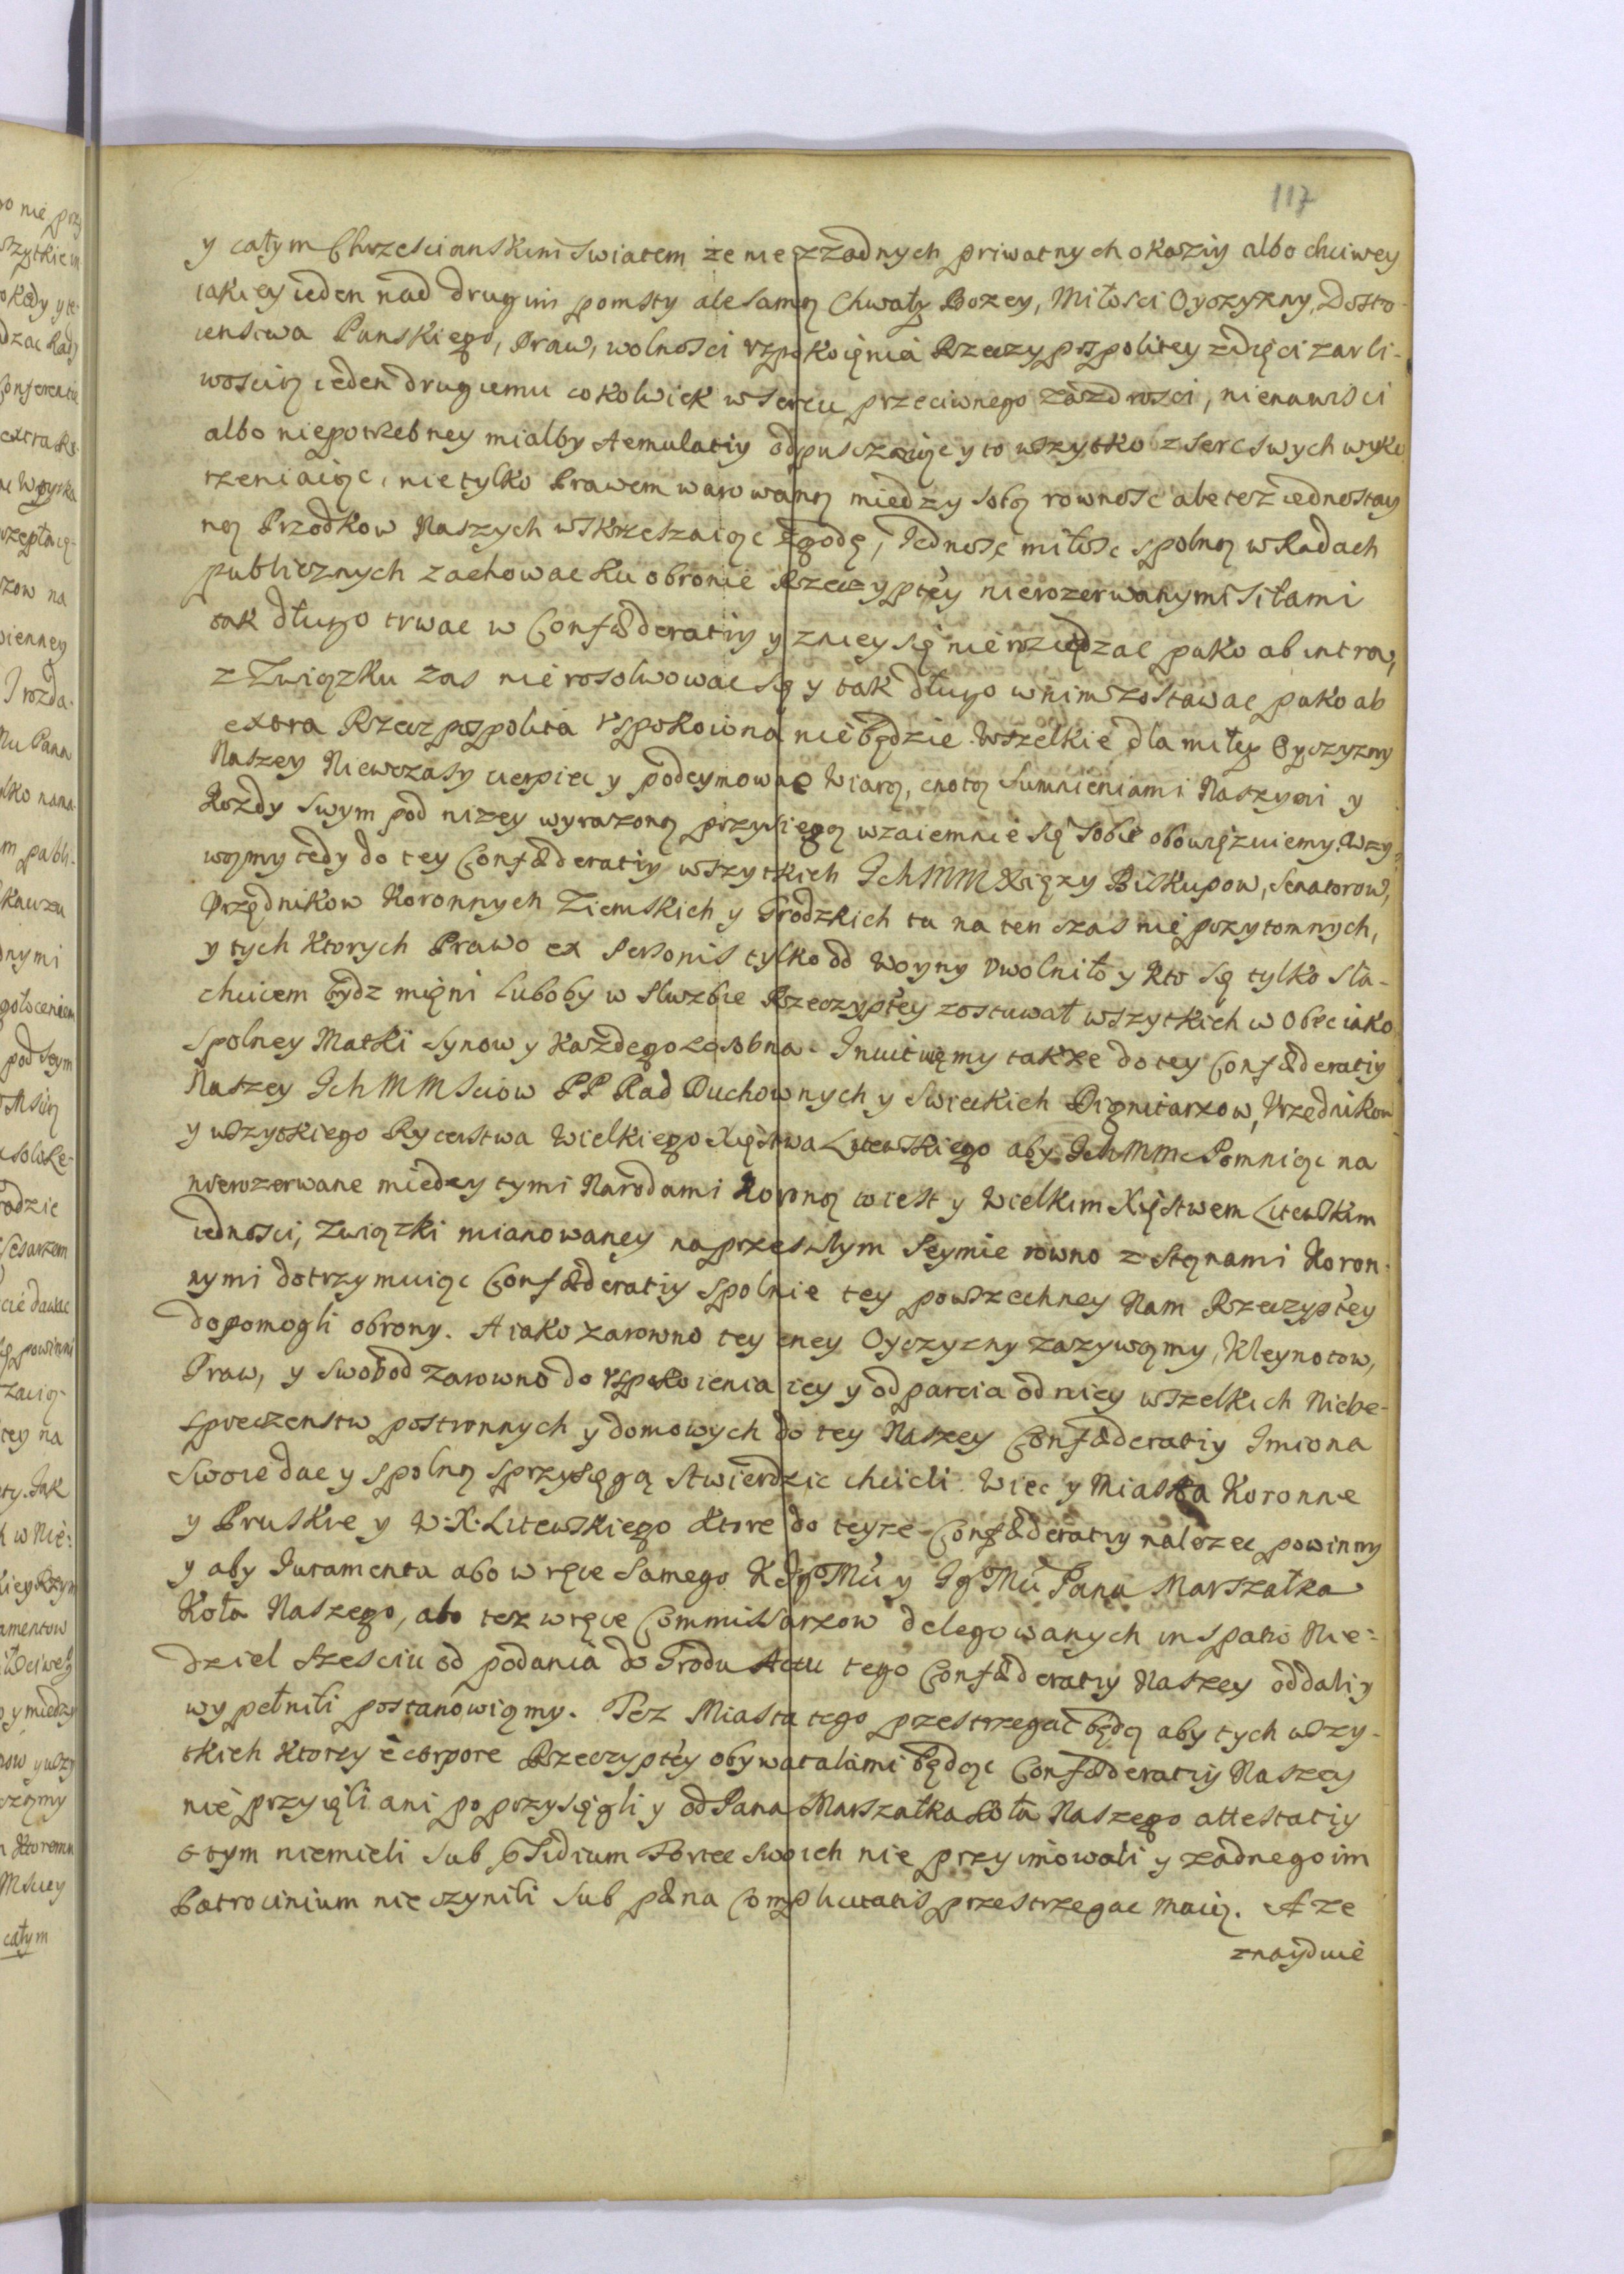 117
y całym Chrzescianskim swiatem że nie z żadnych priwatnych okaziy albo chciwey
iakiey ieden nad drugim pomsty ale samą Chwałą Bozey, Miłosci Oyczyzny, Dosto-
ienstwa Panskiego, Praw, wolnosci vspokoięnia Rzeczypospolitey zdięci zarli-
woscią ieden drugiemu cokolwiek w sercu przeciwnego zazdrosci, nienawisci
albo niepotrzebney mialby Aemulatiy odpuszczaiąc y to wszytko z serc swych wyko
rzeniaiąc, nie tylko Prawem warowaną miedzy sobą rownosc ale tesz iednostay
ną Przodkow Naszych wskrzeszaiąc Zgodę, Jednosc miłosc spolną w Radach
publicznych zachowac ku obronie Rzeczypltey nierozerwanymi siłami
tak długo trwac w Confæderatiy y zniey się nie roziędzac poko ab intra,
z Związku zas nie rosolwowac się y tak długo w nim zostawac poko ab
extra Rzeczpospolita vspokoiona nie będzie. Wszelkie dla miłey Oyczyzny
Naszey Niewczasy cierpiec y podeymowac Wiarą, cnotą sumnieniami Naszymi y
Kozdy swym pod nizey wyrazoną przysiegą wzaiemnie się sobie obowięzuiemy. Wzy-
waymy tedy do tey Confæderatiy wszytkich IchMM Xięzy Biskupow, Senatorow,
Vrzędnikow Koronnych Ziemskich y Grodzkich tu na ten czas nie przytomnych,
y tych ktorych Prawo ex Personis tylko od Woyny vwolniło y kto się tylko sla-
chcicem bydz mięni luboby w słuzbie Rzeczypltey zostawał wszytkich w obec iako
spolney Matki synow y kazdego zosobna. Inuituięmy takze do tey Confæderatiy
Naszey IchMMsciow PP Rad Duchownych y Swieckich Dignitarzow, Vrzednikow
y wszytkiego Rycerstwa Wielkiego Xięstwa Litewskiego aby IchMMc Pomniąc na
nierozerwane miedzy tymi Narodami Koroną to iest y Wielkim Xięstwem Litewskim
iednosci, związki mianowaney na przeszłym Seymie rowno z Stanami Koron-
nymi dotrzymuiąc Confæderatiy spolnie tey powszechney Nam Rzeczypltey
dopomogli obrony. A iako zarowno tey eney Oyczyzny zazywamy, Kleynotow,
Praw, y swobod zarowno do vspokoienia iey y odparcia od niey wszelkich Niebe-
spieczenstw postronnych y domowych do tey Naszey Confæderatiy Imiona
swoie dac y spolną sprzysięgą stwierdzic chcieli. Wiec y Miasta Koronne
y Pruskie y W: X: Litewskiego ktore do teyze Confæderatiy nalezec powinny
y aby Iuramenta abo w ręce samego X IgoMci y IgoMci Pana Marszałka
Koła Naszego, abo tez w ręce Commissarzow delegowanych in spatio Nie-
dziel szesciu od podania do Grodu Actu tego Confæderatiy Naszey oddali y
wypełnili postanowiąmy. Tez Miasta tego przestrzegac będą aby tych wszy-
tkich ktorzy è corpore Rzeczypltey obywatalami będąc Confæderatiy Naszey
nie przyięli ani poprzysięgli y od Pana Marszałka Koła Naszego attestatiy
o tym niemieli sub Portee swoich nie przyimowali y zadnego im
Patrocinium nie czynili sub pæna Complicitatis przestrzegac maią. A ze
znayduie